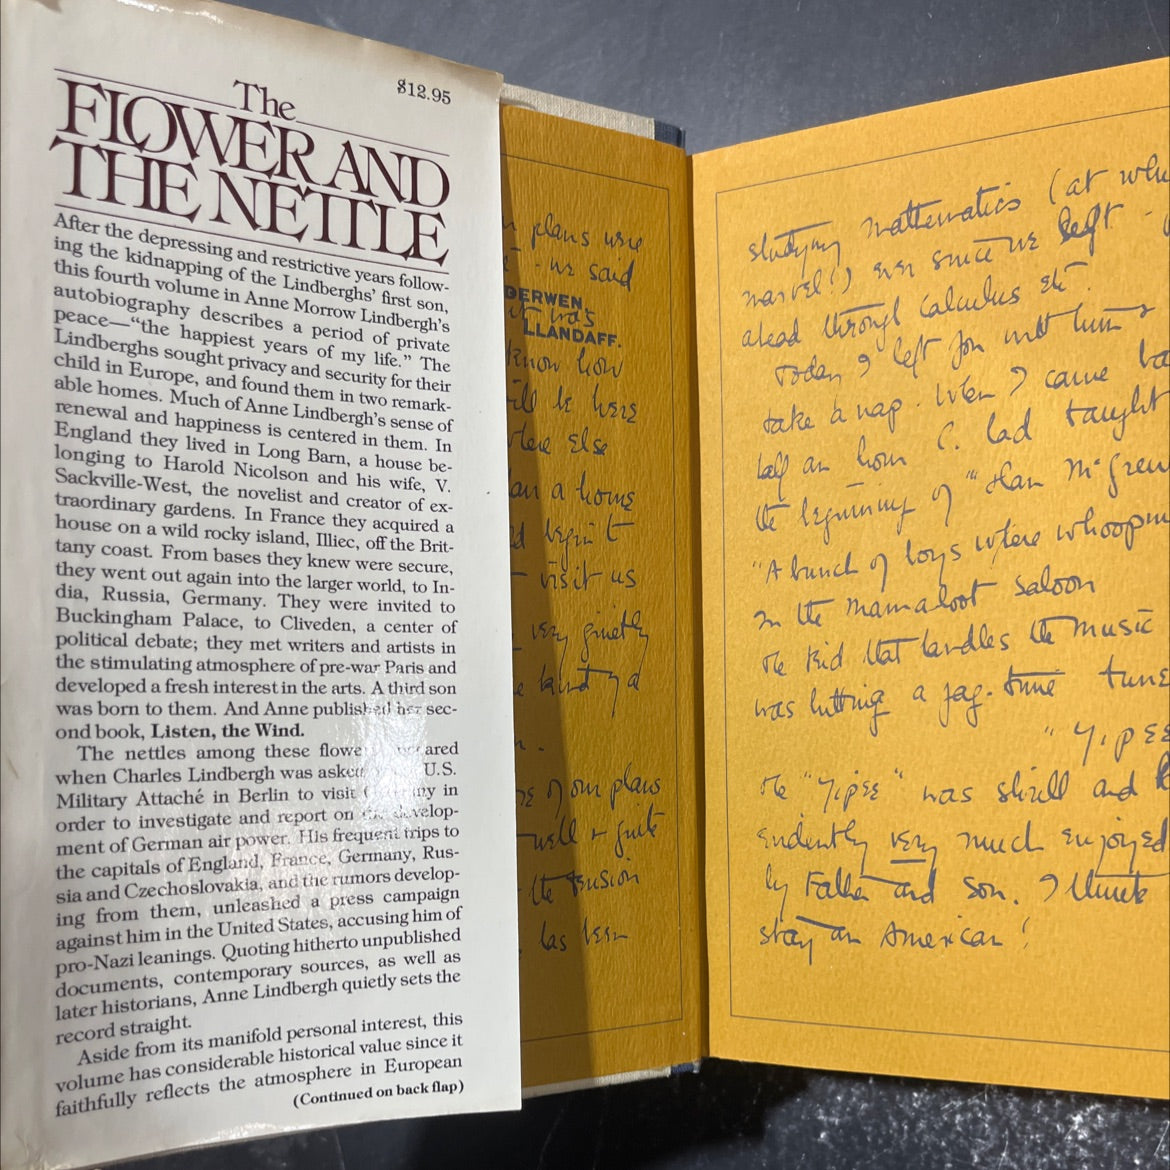 $12.95
The
FLOWER AND
THE NETTLE
After the depressing and restrictive years follow-
ing the kidnapping of the Lindberghs' first son,
this fourth volume in Anne Morrow Lindbergh's
autobiography describes a period of private
peace—"the happiest years of my life." The
Lindberghs sought privacy and security for their
child in Europe, and found them in two remark-
able homes. Much of Anne Lindbergh's sense of
renewal and happiness is centered in them. In
England they lived in Long Barn, a house be-
longing to Harold Nicolson and his wife, V.
Sackville-West, the novelist and creator of ex-
traordinary gardens. In France they acquired a
house on a wild rocky island, Illiec, off the Brit-
tany coast. From bases they knew were secure,
they went out again into the larger world, to In-
dia, Russia, Germany. They were invited to
Buckingham Palace, to Cliveden, a center of
political debate; they met writers and artists in
the stimulating atmosphere of pre-war Paris and
developed a fresh interest in the arts. A third son
was born to them. And Anne published her sec-
ond book, Listen, the Wind.
The nettles among these flowers appeared
when Charles Lindbergh was asked U.S.
Military Attaché in Berlin to visit Germany in
order to investigate and report on the develop-
ment of German air power. His frequent trips to
the capitals of England, France, Germany, Rus-
sia and Czechoslovakia, and the rumors develop-
ing from them, unleashed a press campaign
against him in the United States, accusing him of
pro-Nazi leanings. Quoting hitherto unpublished
documents, contemporary sources, as well as
later historians, Anne Lindbergh quietly sets the
record straight.
Aside from its manifold personal interest, this
volume has considerable historical value since it
faithfully reflects the atmosphere in European
(Continued on back flap)
plans were
- we said
DERWEN,
it was
LLANDAFF.
know how
ill be here
where else
an a home
begin t
visit us
very quietly
kind of a
of our plans
well + quite
the tension
has been
studying mathematics (at
marvel!) ever since we left
ahead through calculus etc.
Today I left Jon with him +
take a nap. When I came
half an hour C. had taught
the beginning of "Dan McGrew
"A bunch of boys where
in the mamaloot saloon
The kid that handles the music
was hitting a jag-time tune
"Yipee
The "Yipee" was shrill and
evidently very much enjoyed
by Father and son. I think
stay an American!